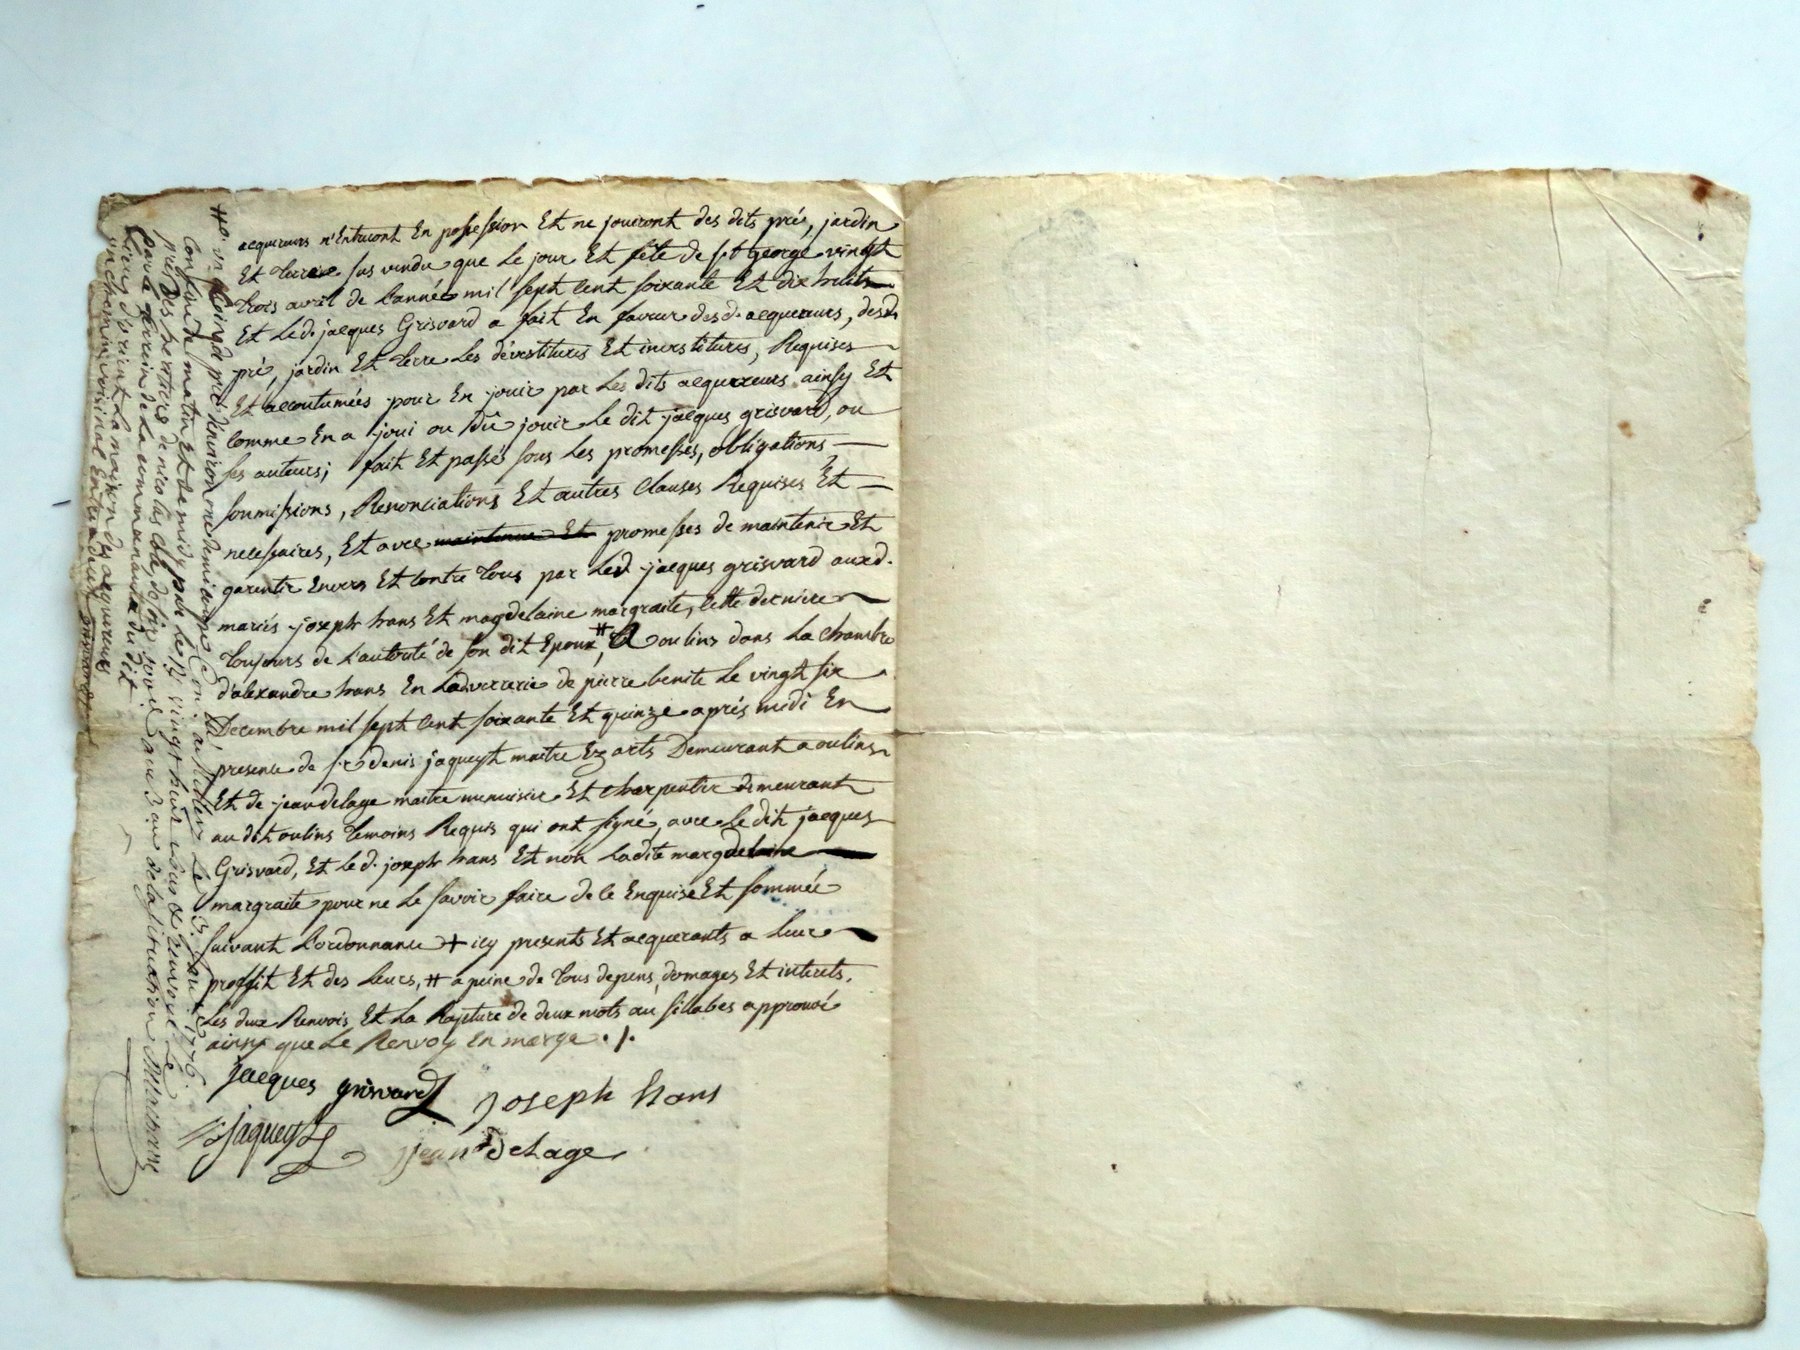 acquereurs n'Entreront En possession Et ne jouiront des dits pré, jardin
Et terre sus vendu que Le jour Et fête de st george vingt
trois avril de L'année mil sept cent soixante Et dix huit
Et Led. jacques Grisvard a fait En faveur desd. acquereurs, desd.
pré, jardin Et terre Les dévestitures Et investitures, Requises
Et accoutumées pour En jouir par Les dits acquereurs ainsy Et
comme En a joui ou dû jouir Le dit jacques grisvard, ou
ses auteurs; fait Et passé sous Les promesses, obligations,
soumissions, Renonciations Et autres clauses Requises Et
necessaires, Et avec promesses de maintenir Et
garentir Envers Et contre tous par Led. jacques grisvard auxd.
mariés joseph hans Et magdelaine margraite, cette derniere
toujours de L'autorité de son dit Epoux, # A oulins dans La chambre
d'alexandre hans En Ladverrerie de pierre benite Le vingt six
Decembre mil sept cent soixante Et quinze après midi En
presence de sr denis jaqueyt maitre Ez arts Demeurant a oulins
Et de jean delage maitre menuisier Et charpentier demeurant
au dit oulins temoins Requis qui ont signé, avec Le dit jacques
Grisvard, Et Le d. joseph hans Et non Ladite magdelaine
margraite pour ne Le savoir faire de ce Enquise Et sommée
suivant L'ordonnance + icy presents Et acquerants a Leur
proffit Et des Leurs, # a peine de tous depens, domages Et interets.
Les deux Renvois Et La Rapture de deux mots ou sillabes approuvé
ainsy que Le Renvoy En marge ./.
jacques grisvard joseph hans
jaqueyt jean delage
confin de matin Et de midy par Le
par Le terrein de La commenanderie du dit
Lieu, d'orient La maison des acquereurs
un chemin voisinal Entre deux